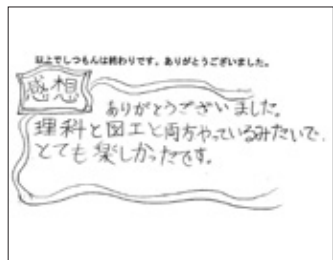 以上でしつもんは終わりです。ありがとうございました。
感想
ありがとうございました。
理科と図工と両方やっているみたいで、
とても楽しかったです。